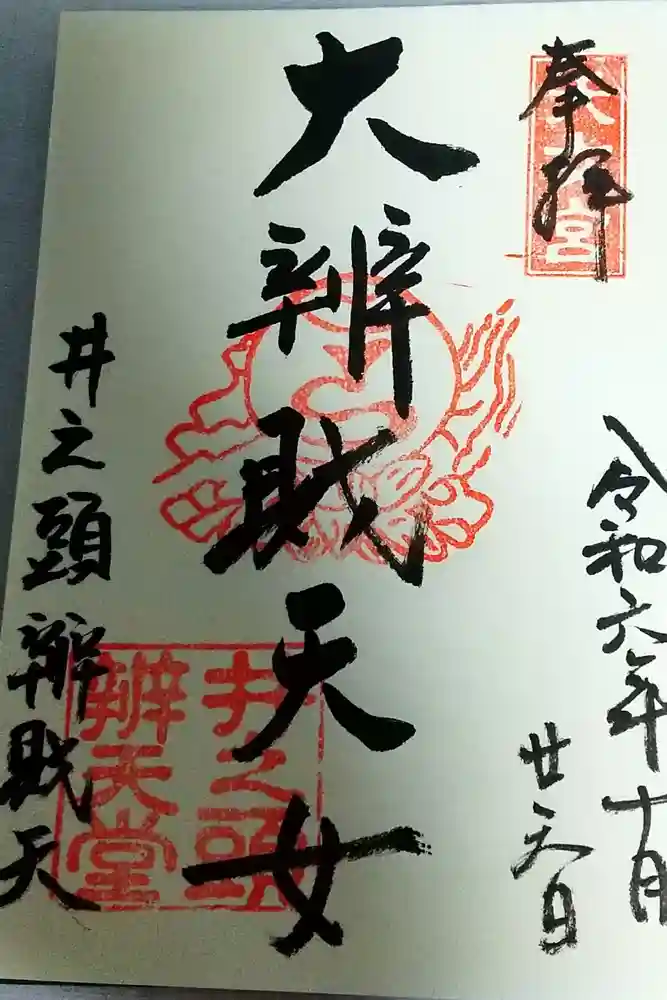 奉拝
令和六年十月
廿六日
大辨財天女
井之頭辨財天
井之頭
辨天堂